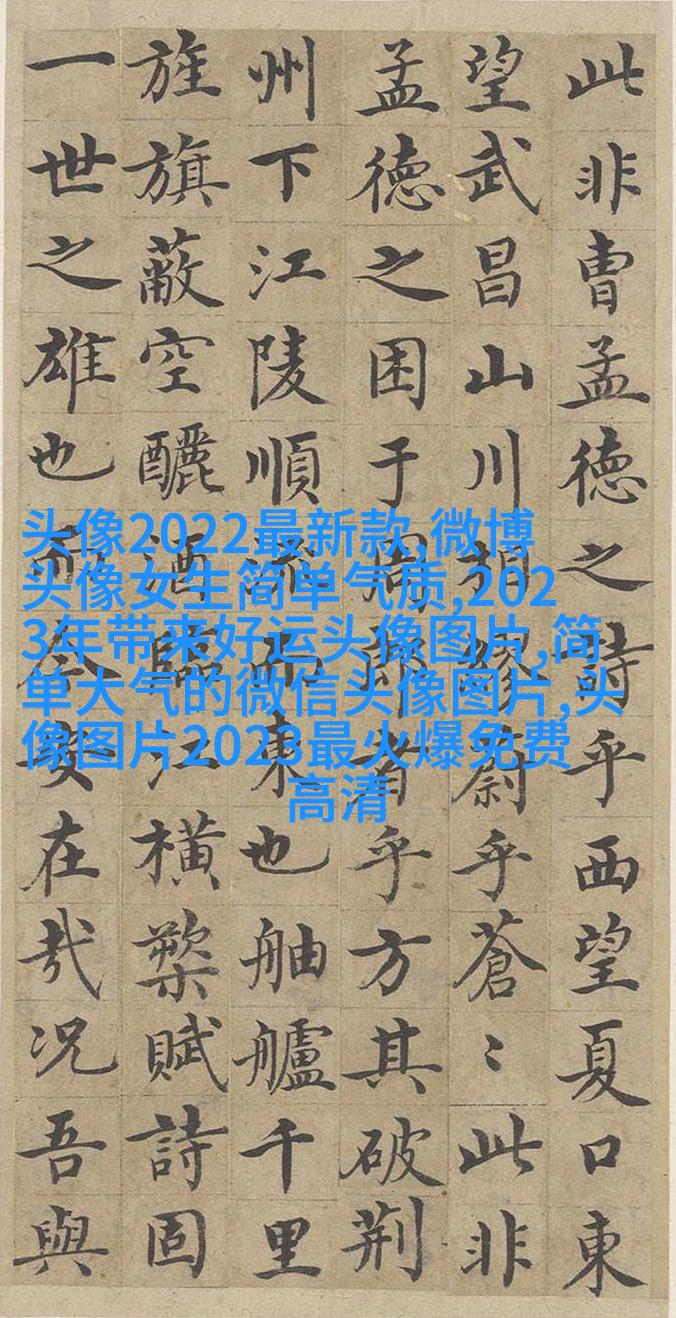 此非曹孟德之詩乎西望夏口東
望武昌山川相繆蔚乎蒼〻此非
孟德之困于周郎者乎方其破荆
州下江陵順流而東也舳艫千里
旌旗蔽空釃酒臨江橫槊賦詩固
一世之雄也而今安在哉况吾與
头像2022最新款,微博
头像女生简单气质,202
3年带来好运头像图片,简
单大气的微信头像图片,头
像图片2023最火爆免费
高清